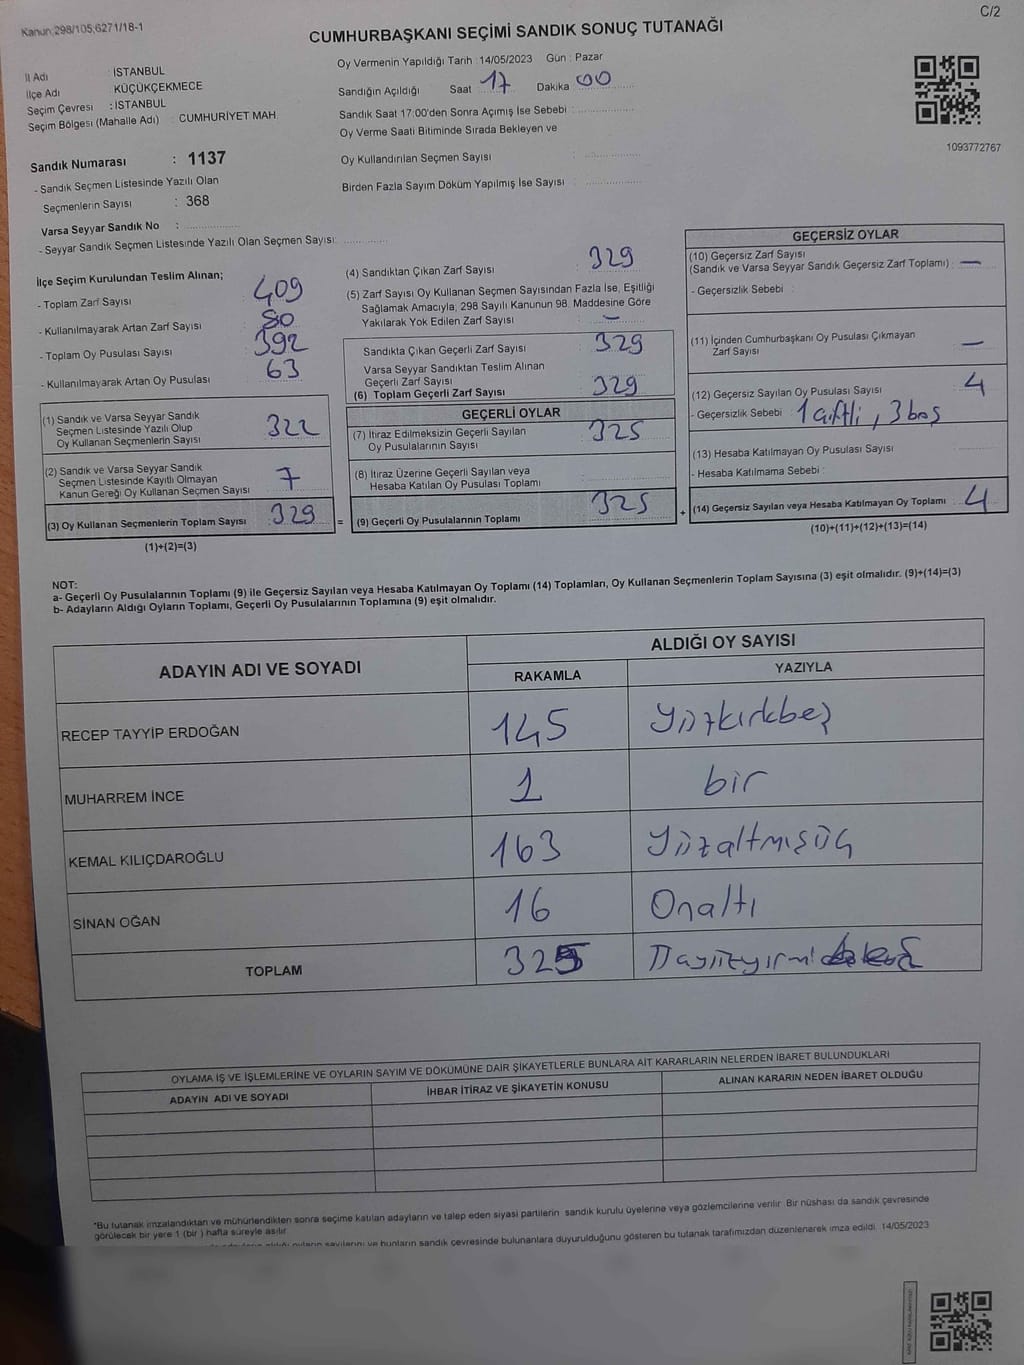 Kanun;298/105;6271/18-1
C/2
CUMHURBAŞKANI SEÇİMİ SANDIK SONUÇ TUTANAĞI
İl Adı : İSTANBUL
İlçe Adı KÜÇÜKÇEKMECE
Seçim Çevresi : İSTANBUL
Seçim Bölgesi (Mahalle Adı) : CUMHURİYET MAH.
Sandık Numarası : 1137
- Sandık Seçmen Listesinde Yazılı Olan
Seçmenlerin Sayısı : 368
Varsa Seyyar Sandık No :
- Seyyar Sandık Seçmen Listesinde Yazılı Olan Seçmen Sayısı:
Oy Vermenin Yapıldığı Tarih : 14/05/2023 Gün : Pazar
Sandığın Açıldığı Saat 17 Dakika 00
Sandık Saat 17:00'den Sonra Açımış İse Sebebi :
Oy Verme Saati Bitiminde Sırada Bekleyen ve
Oy Kullandırılan Seçmen Sayısı :
Birden Fazla Sayım Döküm Yapılmış İse Sayısı :
1093772767
İlçe Seçim Kurulundan Teslim Alınan;
- Toplam Zarf Sayısı : 409
- Kullanılmayarak Artan Zarf Sayısı : 80
- Toplam Oy Pusulası Sayısı : 392
- Kullanılmayarak Artan Oy Pusulası : 63
(1) Sandık ve Varsa Seyyar Sandık
Seçmen Listesinde Yazılı Olup
Oy Kullanan Seçmenlerin Sayısı : 322
(2) Sandık ve Varsa Seyyar Sandık
Seçmen Listesinde Kayıtlı Olmayan
Kanun Gereği Oy Kullanan Seçmen Sayısı : 7
(3) Oy Kullanan Seçmenlerin Toplam Sayısı : 329 =
(1)+(2)=(3)
(4) Sandıktan Çıkan Zarf Sayısı : 329
(5) Zarf Sayısı Oy Kullanan Seçmen Sayısından Fazla İse, Eşitliği
Sağlamak Amacıyla, 298 Sayılı Kanunun 98. Maddesine Göre
Yakılarak Yok Edilen Zarf Sayısı : —
Sandıkta Çıkan Geçerli Zarf Sayısı : 329
Varsa Seyyar Sandıktan Teslim Alınan
Geçerli Zarf Sayısı :
(6) Toplam Geçerli Zarf Sayısı : 329
GEÇERLİ OYLAR
(7) İtiraz Edilmeksizin Geçerli Sayılan
Oy Pusulalarının Sayısı : 325
(8) İtiraz Üzerine Geçerli Sayılan veya
Hesaba Katılan Oy Pusulası Toplamı :
(9) Geçerli Oy Pusulalarının Toplamı : 325 +
GEÇERSİZ OYLAR
(10) Geçersiz Zarf Sayısı
(Sandık ve Varsa Seyyar Sandık Geçersiz Zarf Toplamı) : —
- Geçersizlik Sebebi :
(11) İçinden Cumhurbaşkanı Oy Pusulası Çıkmayan
Zarf Sayısı : —
(12) Geçersiz Sayılan Oy Pusulası Sayısı : 4
- Geçersizlik Sebebi : 1 çiftli, 3 boş
(13) Hesaba Katılmayan Oy Pusulası Sayısı :
- Hesaba Katılmama Sebebi :
(14) Geçersiz Sayılan veya Hesaba Katılmayan Oy Toplamı : 4
(10)+(11)+(12)+(13)=(14)
NOT:
a- Geçerli Oy Pusulalarının Toplamı (9) ile Geçersiz Sayılan veya Hesaba Katılmayan Oy Toplamı (14) Toplamları, Oy Kullanan Seçmenlerin Toplam Sayısına (3) eşit olmalıdır. (9)+(14)=(3)
b- Adayların Aldığı Oyların Toplamı, Geçerli Oy Pusulalarının Toplamına (9) eşit olmalıdır.
ADAYIN ADI VE SOYADI
ALDIĞI OY SAYISI
RAKAMLA YAZIYLA
RECEP TAYYİP ERDOĞAN 145 Yüzkırkbeş
MUHARREM İNCE 1 bir
KEMAL KILIÇDAROĞLU 163 Yüzaltmışüç
SİNAN OĞAN 16 Onaltı
TOPLAM 325
OYLAMA İŞ VE İŞLEMLERİNE VE OYLARIN SAYIM VE DÖKÜMÜNE DAİR ŞİKAYETLERLE BUNLARA AİT KARARLARIN NELERDEN İBARET BULUNDUKLARI
ADAYIN ADI VE SOYADI İHBAR İTİRAZ VE ŞİKAYETİN KONUSU ALINAN KARARIN NEDEN İBARET OLDUĞU
*Bu tutanak imzalandıktan ve mühürlendikten sonra seçime katılan adayların ve talep eden siyasi partilerin sandık kurulu üyelerine veya gözlemcilerine verilir. Bir nüshası da sandık çevresinde
görülecek bir yere 1 (bir) hafta süreyle asılır.
oyların sayılarını ve bunların sandık çevresinde bulunanlara duyurulduğunu gösteren bu tutanak tarafımızdan düzenlenerek imza edildi. 14/05/2023